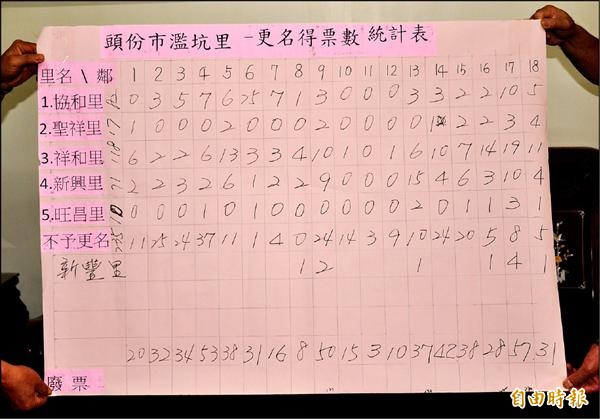 頭份市濫坑里 -更名得票數 統計表
里名 \ 鄰 1 2 3 4 5 6 7 8 9 10 11 12 13 14 15 16 17 18
1.協和里 0 3 5 7 6 25 7 1 3 0 0 0 3 3 2 2 10 5
2.聖祥里 17 1 0 0 0 2 0 0 0 2 0 0 0 0 2 2 3 4
3.祥和里 118 6 2 2 6 13 3 3 4 10 1 0 1 6 10 7 14 19 11
4.新興里 71 2 2 3 2 6 1 2 2 9 0 0 0 15 4 6 3 10 4
5.旺昌里 10 0 0 0 1 0 1 0 0 0 0 0 0 2 0 1 1 3 1
不予更名 235 11 25 24 37 11 1 4 0 24 14 3 9 10 24 20 5 8 5
新豐里 1 2 1 1 4 1
20 32 34 53 38 31 16 8 50 15 3 10 37 42 38 28 57 31
廢票
自由時報